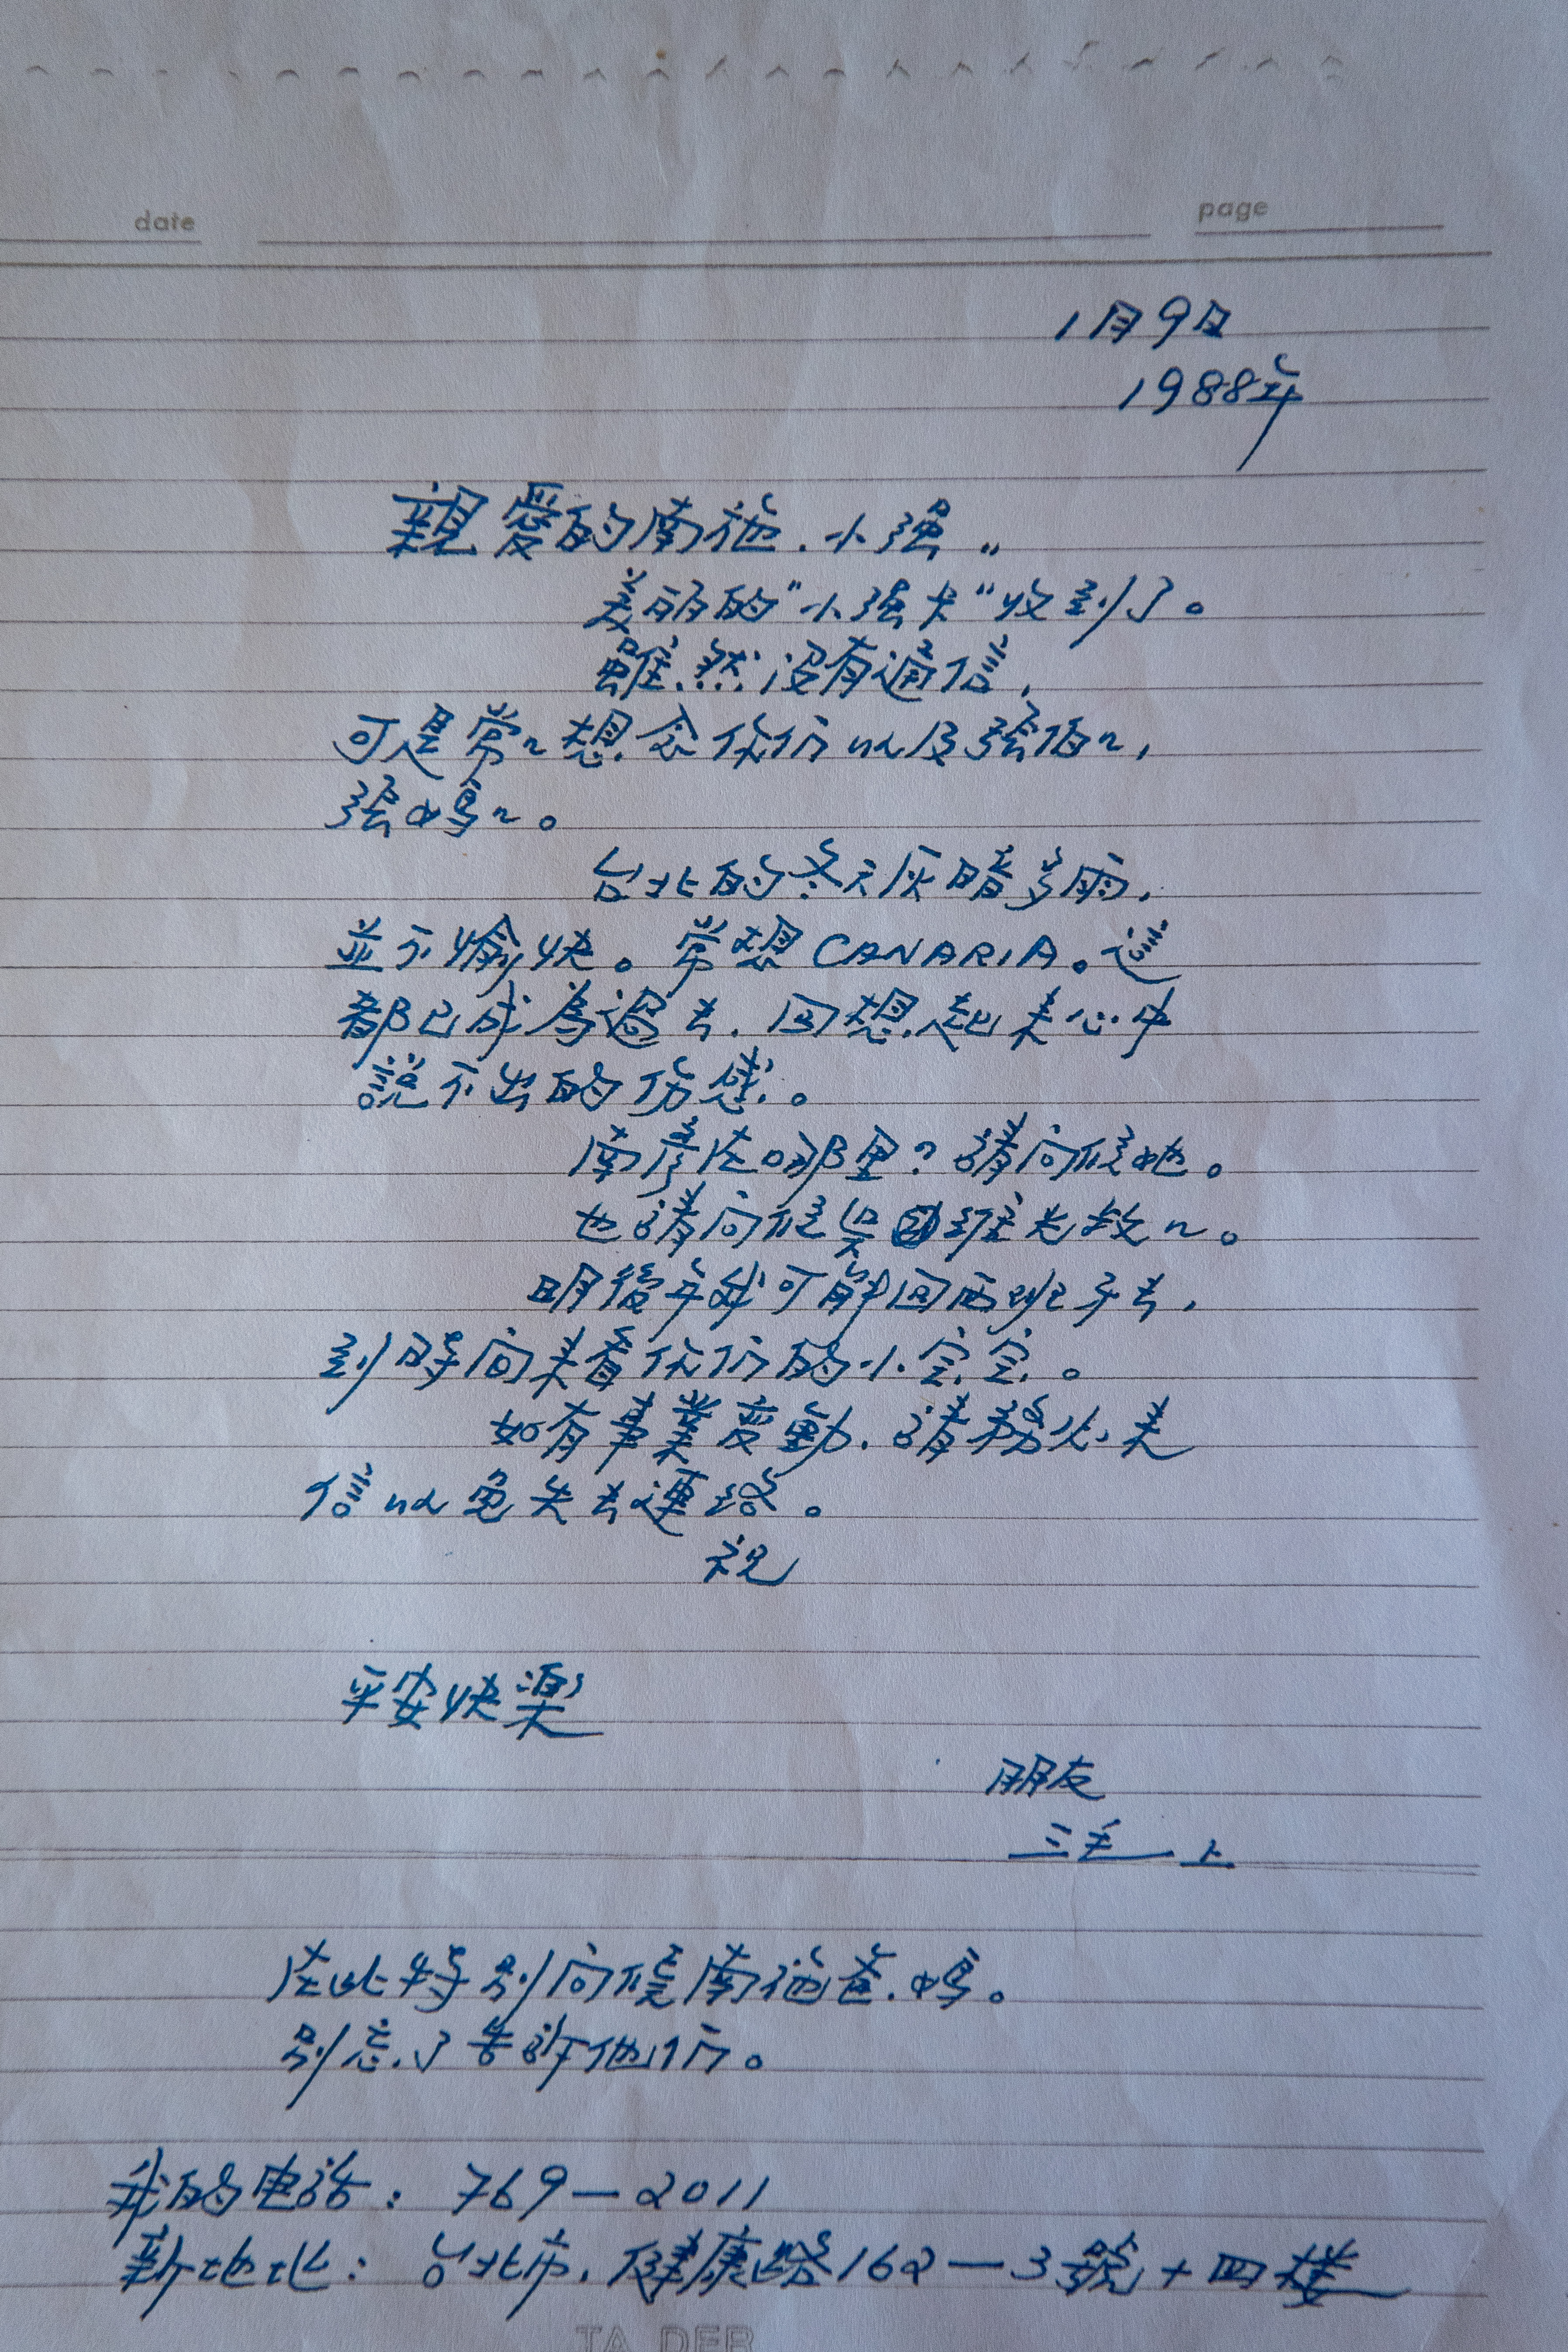 date
page
1月9日
1988年
親愛的南施.小強..
美丽的"小強卡"收到了。
雖然沒有通信,
可是常々想念你们以及張伯々,
張媽々。
台北的冬天灰暗多雨,
並不愉快。常想CANARIA。這
都已成為過去.回想起来心中
說不出的伤感。
南彦在哪里?請问候她。
也請问候吴維光教々。
明後年我可能回西班牙去,
到時间来看你们的小宝宝。
如有事業变動.請務必来
信以免失去連络。
祝
平安快樂
朋友
三毛上
在此特别问候南施爸.媽。
别忘了告訴他们。
我的电話:769-2011
新地址:台北市.健康路162-3號+四楼
TA DER